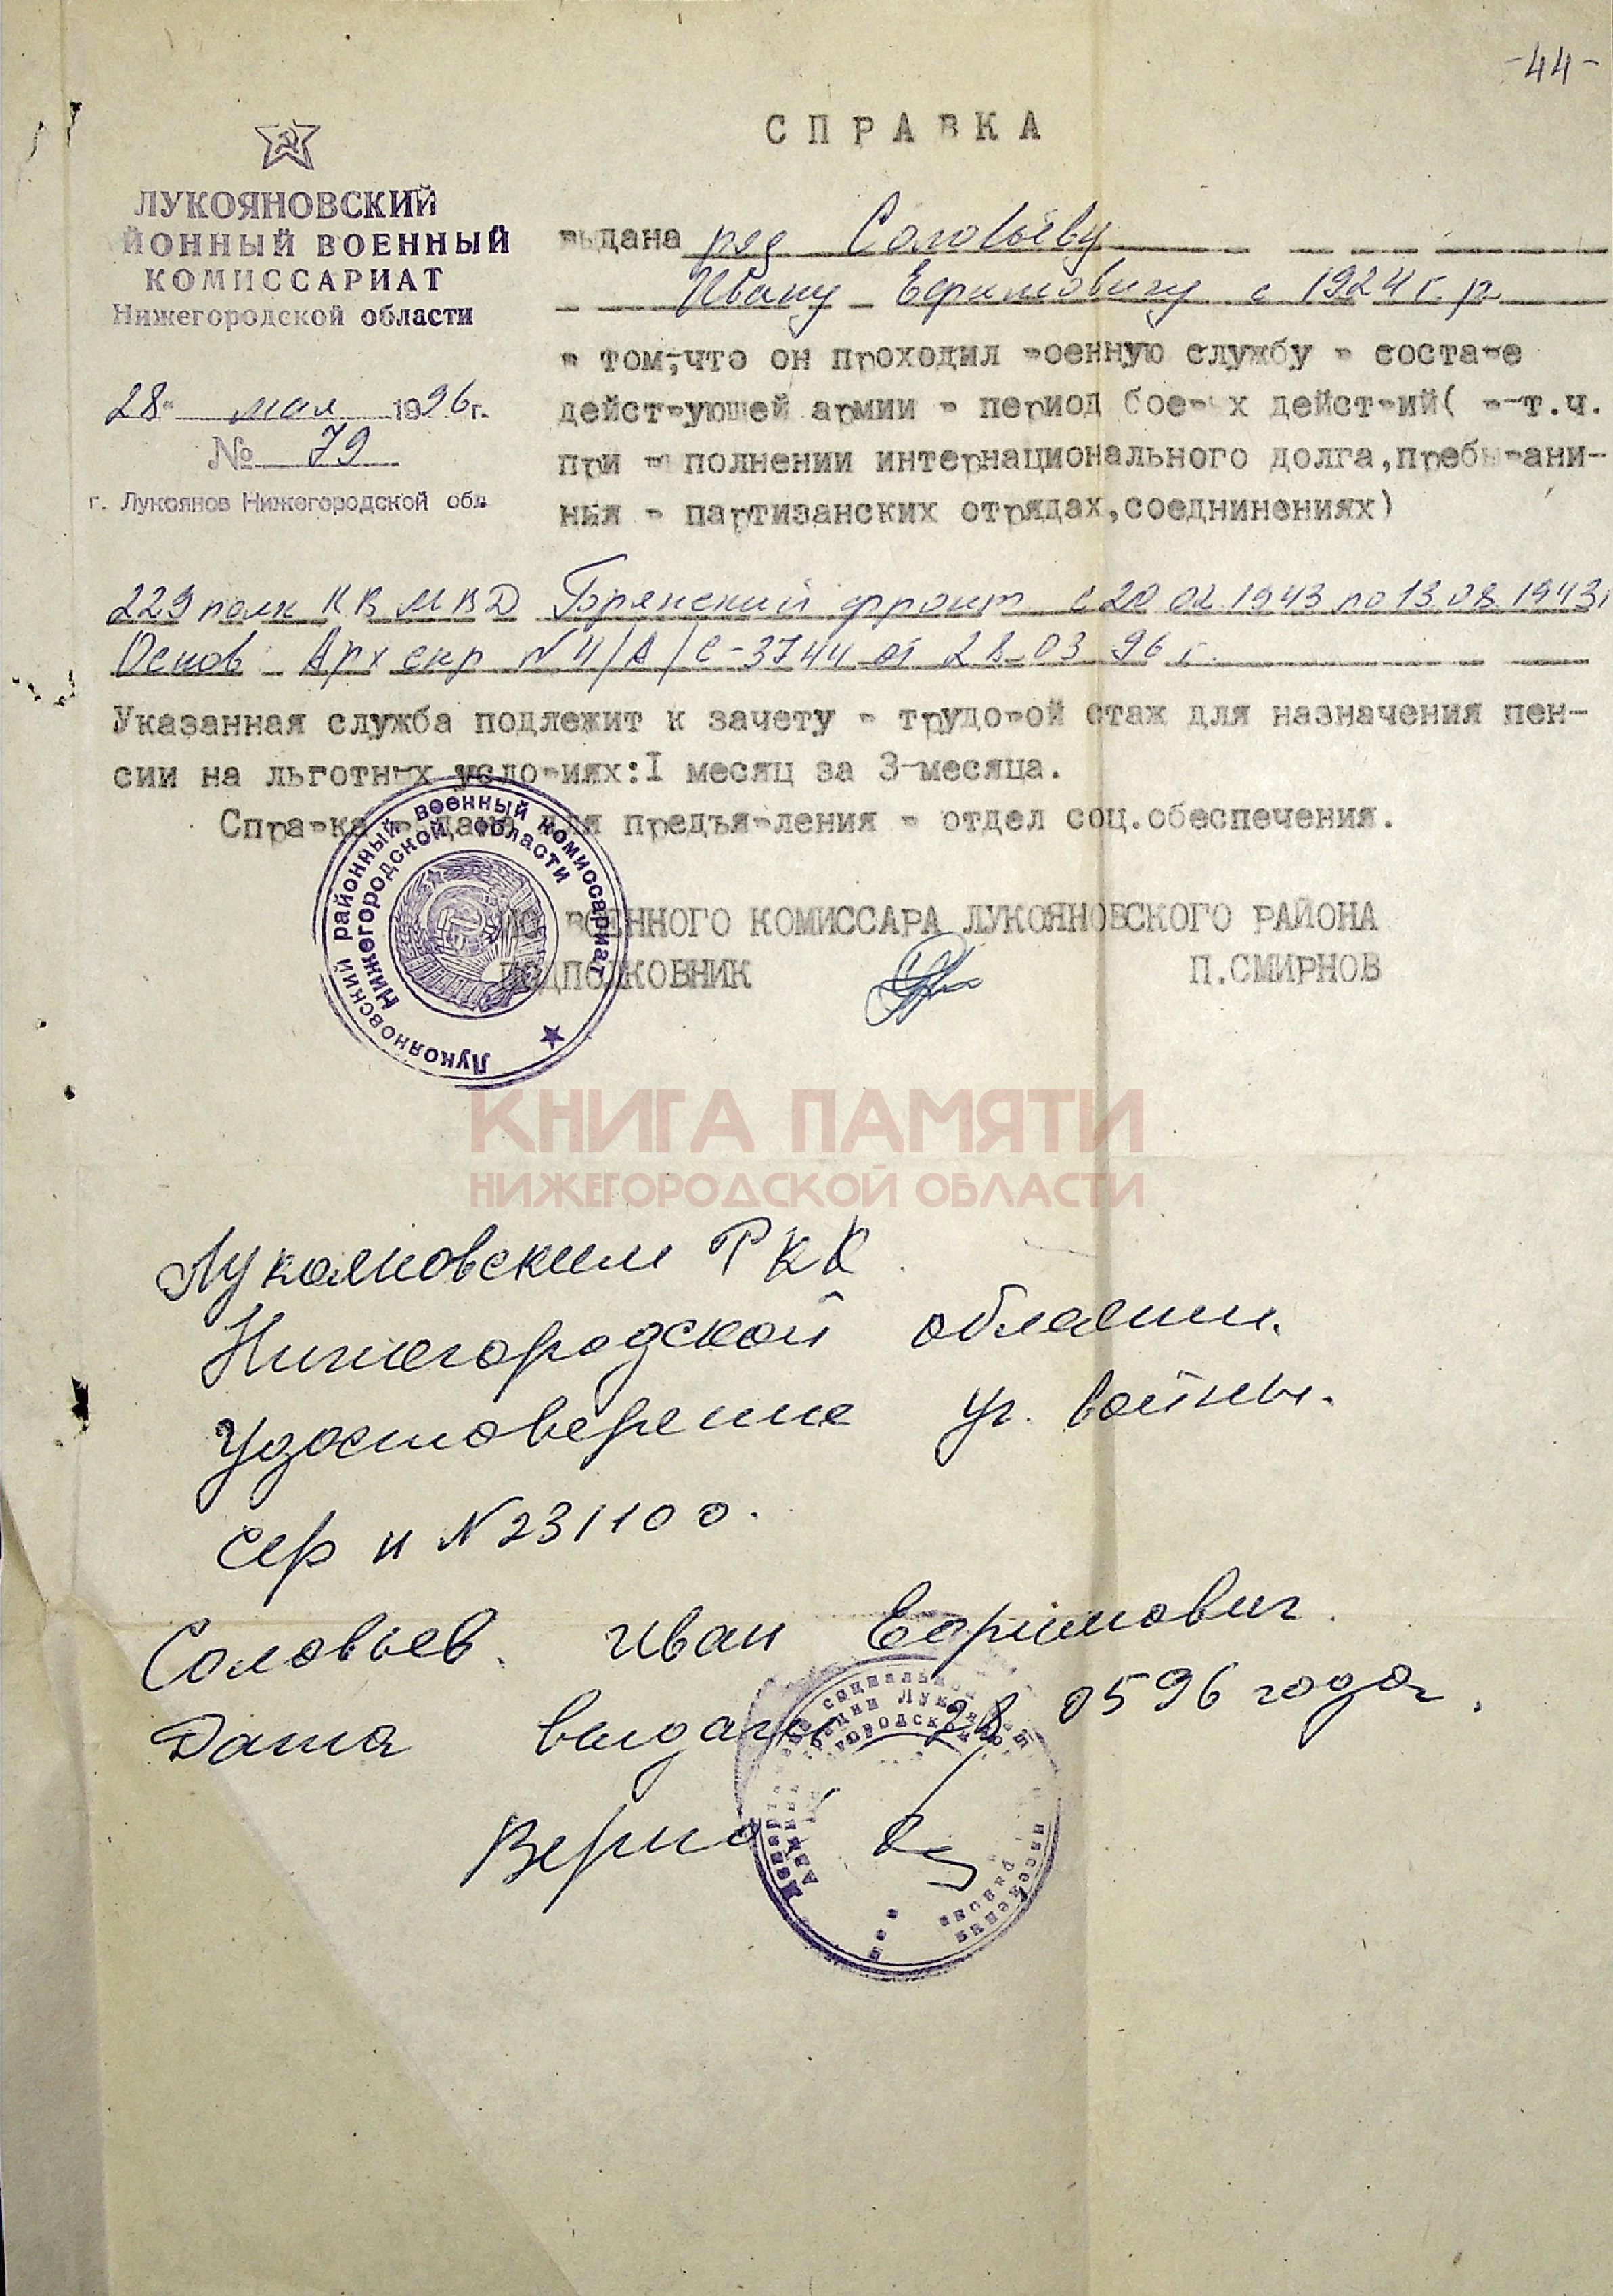 -44-
СПРАВКА
ЛУКОЯНОВСКИЙ
ЙОННЫЙ ВОЕННЫЙ
КОМИССАРИАТ
Нижегородской области
28 " мая 1996г.
№ 79
г. Лукоянов Нижегородской обл
выдана ряд Соловьёву
Ивану Ефимовичу с 1924 г.р
в том,что он проходил военную службу в составе
действующей армии в период боевых действий( в т.ч.
при выполнении интернационального долга,пребывани-
ния в партизанских отрядах,соеднинениях)
229 полк КВ МВД Брянский фронт с 20 02 1943 по 13.08.1943г
Основ Арх спр № 4/А/С-3744 от 28 03 96 г.
Указанная служба подлежит к зачету в трудовой стаж для назначения пен-
сии на льготных условиях:I месяц за 3-месяца.
Справка выдана для предъявления в отдел соц.обеспечения.
ВОЕННОГО КОМИССАРА ЛУКОЯНОВСКОГО РАЙОНА
ПОДПОЛКОВНИК П.СМИРНОВ
Лукояновский районный военный комиссариат
Нижегородской области
КНИГА ПАМЯТИ
НИЖЕГОРОДСКОЙ ОБЛАСТИ
Лукояновским РКК
Нижегородской области.
Удостоверение уч. войны.
Сер и № 231100.
Соловьев. Иван Ефимович.
Дата выдачи 28 0596 года.
Верно